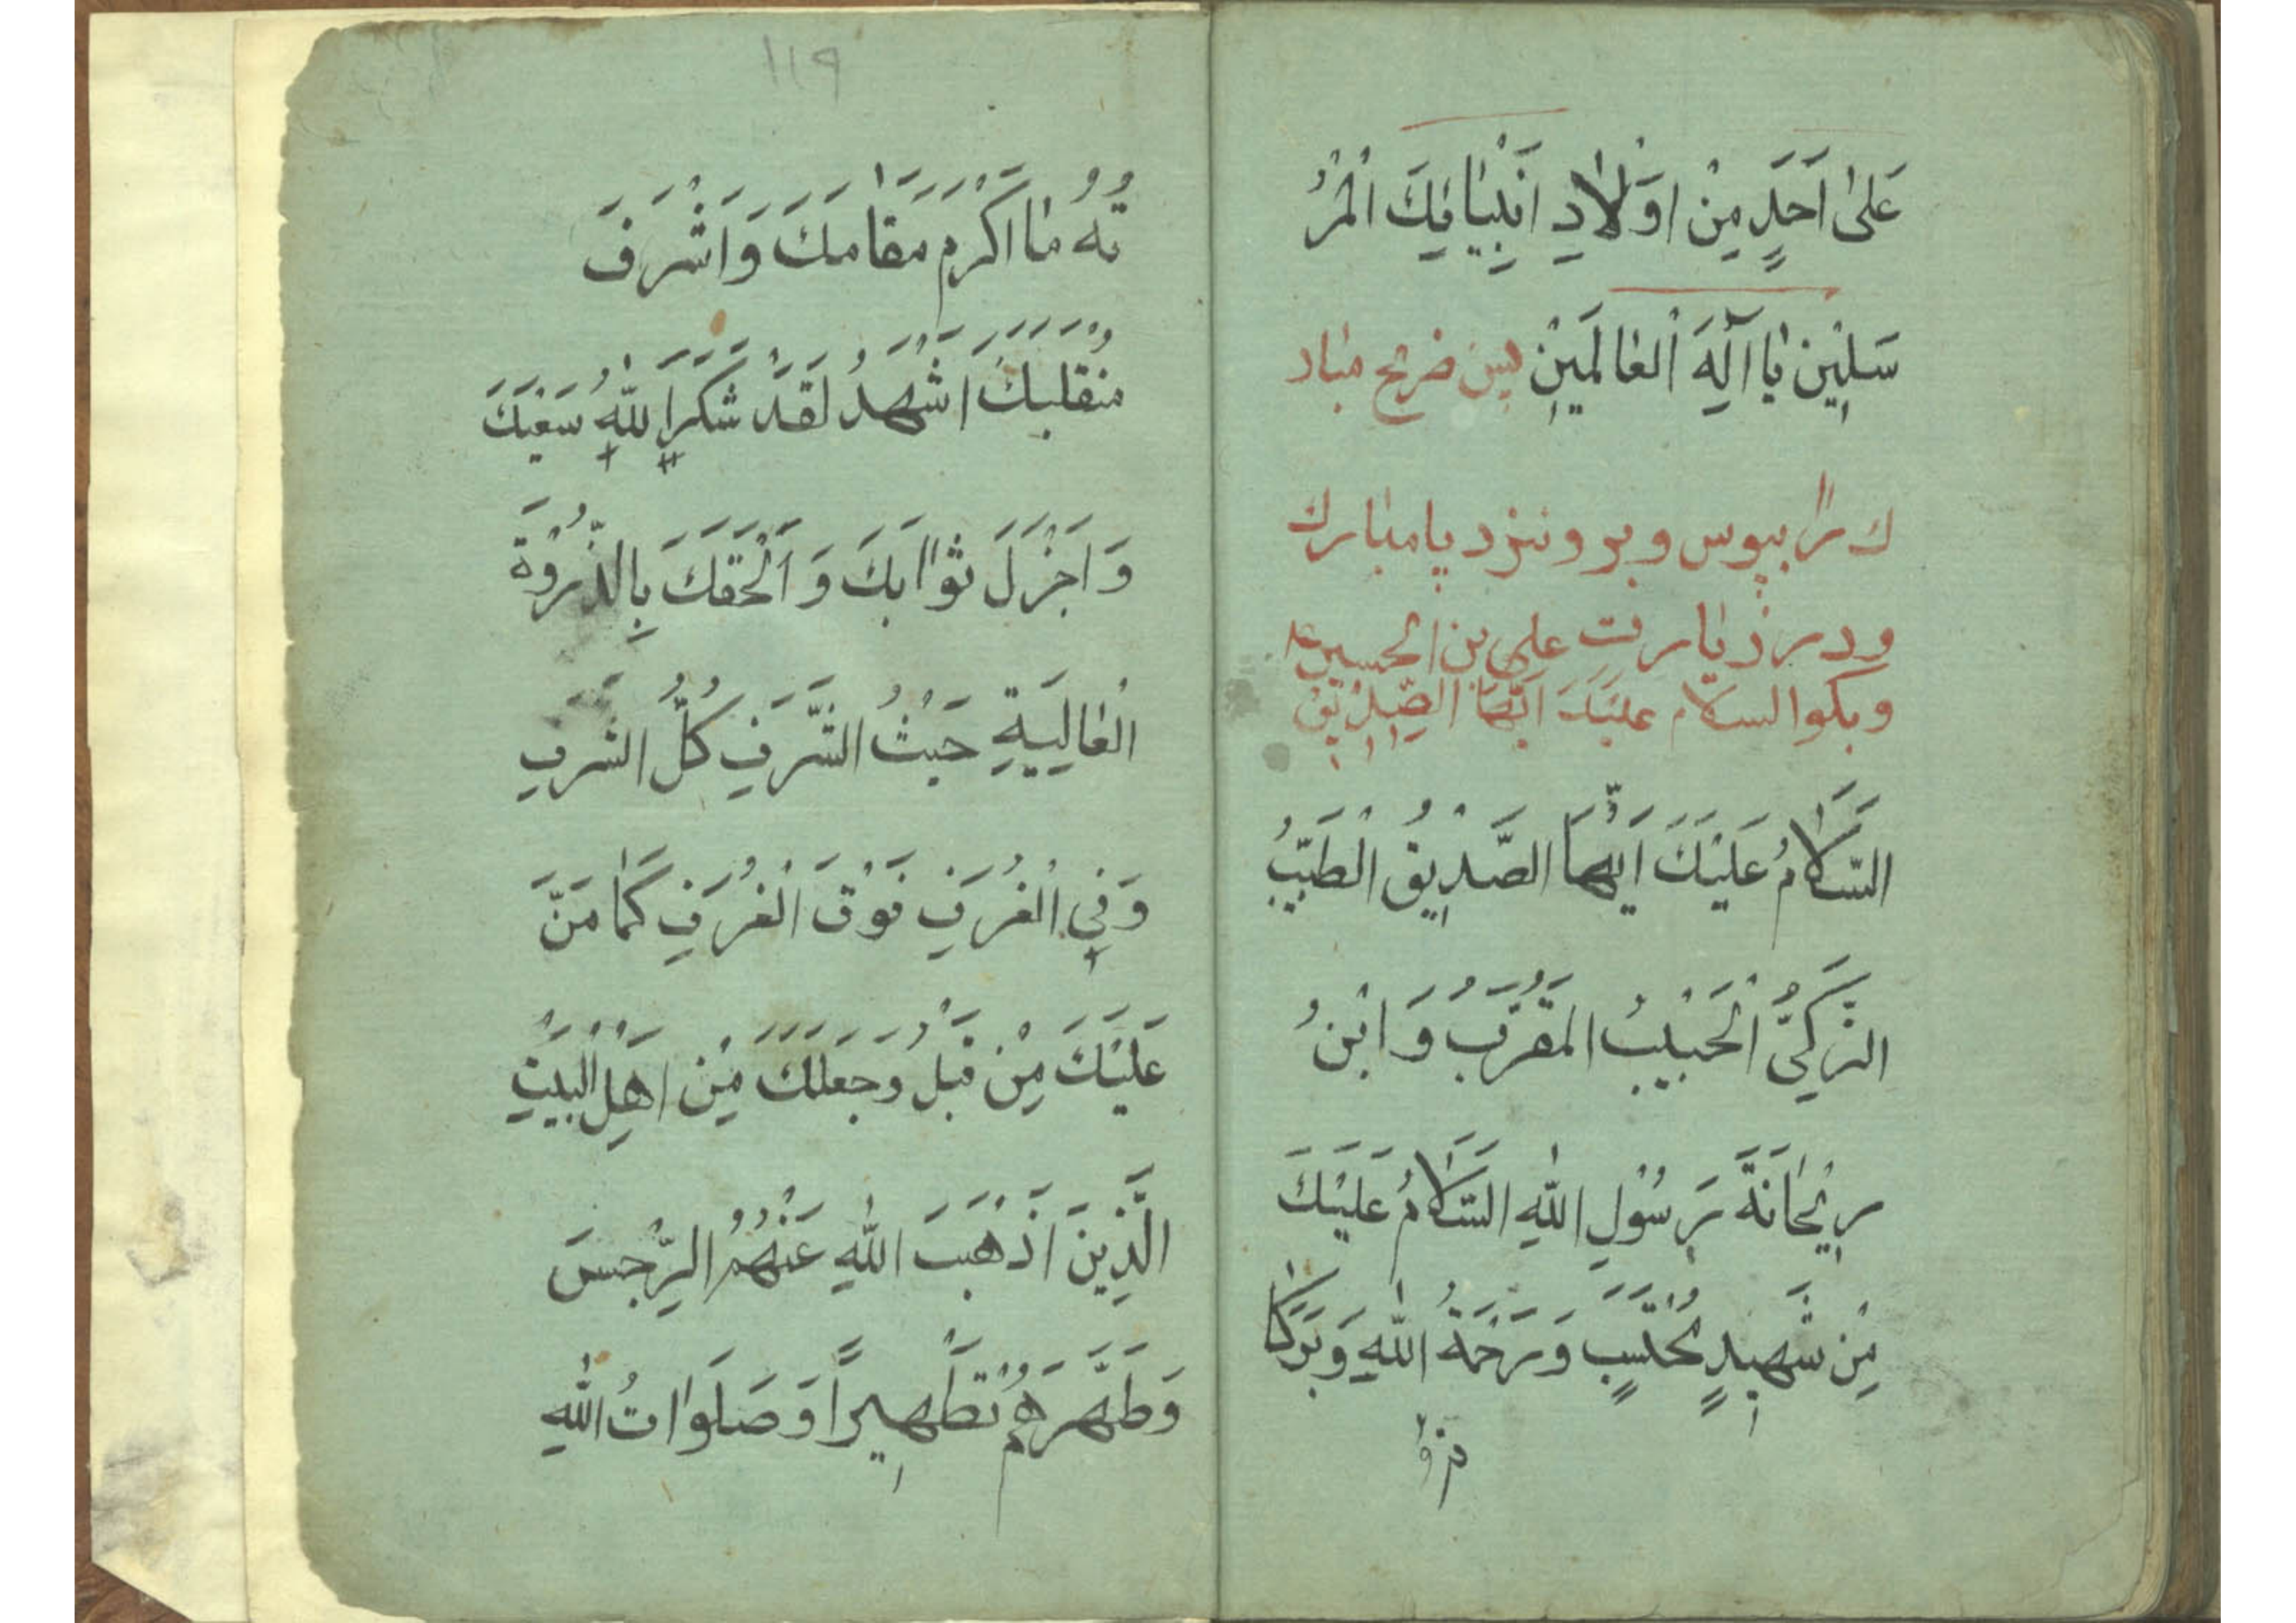 عَلىٰ اَحَدٍ مِنْ اَوْلادِ اَنْبِيٰائِكَ الْمُرْ
سَلِينَ يٰا اِلٰهَ الْعٰالَمِينَ پس ضریح مبار
ك را ببوس و برو نزد پا مبارك
و در زیارت علی بن الحسین ع
و بكو السلام عليك ايها الصديق
السَّلامُ عَلَيْكَ اَيُّهَا الصِّدِيقُ الْطَّيِّبُ
الزَّكِيُّ الْحَبِيبُ الْمُقَرَّبُ وَابْنُ
رِيْحٰانَةَ رَسُوْلِ اللّٰهِ السَّلامُ عَلَيْكَ
مِنْ شَهِيدٍ مُحْتَسِبٍ وَرَحْمَةُ اللّٰهِ وَبَرَكٰا
١١٩
تُهُ مٰا اَكْرَمَ مَقٰامَكَ وَاَشْرَفَ
مُنْقَلَبَكَ اَشْهَدُ لَقَدْ شَكَرَ اللّٰهُ سَعْيَكَ
وَاَجْزَلَ ثَوٰابَكَ وَاَلْحَقَكَ بِالذُّرْوَةِ
الْعٰالِيَةِ حَيْثُ الشَّرَفِ كُلُّ الشرفِ
وَفِي الْغُرَفِ فَوْقَ الْغُرَفِ كَمٰا مَنَّ
عَلَيْكَ مِنْ قَبْلُ وَجَعَلَكَ مِنْ اَهْلِ الْبَيْتِ
الَّذِينَ اَذْهَبَ اللّٰهِ عَنْهُمُ الرِّجْسَ
وَطَهَّرَهُمْ تَطْهِيراً وَصَلَوٰاتُ اللّٰهِ